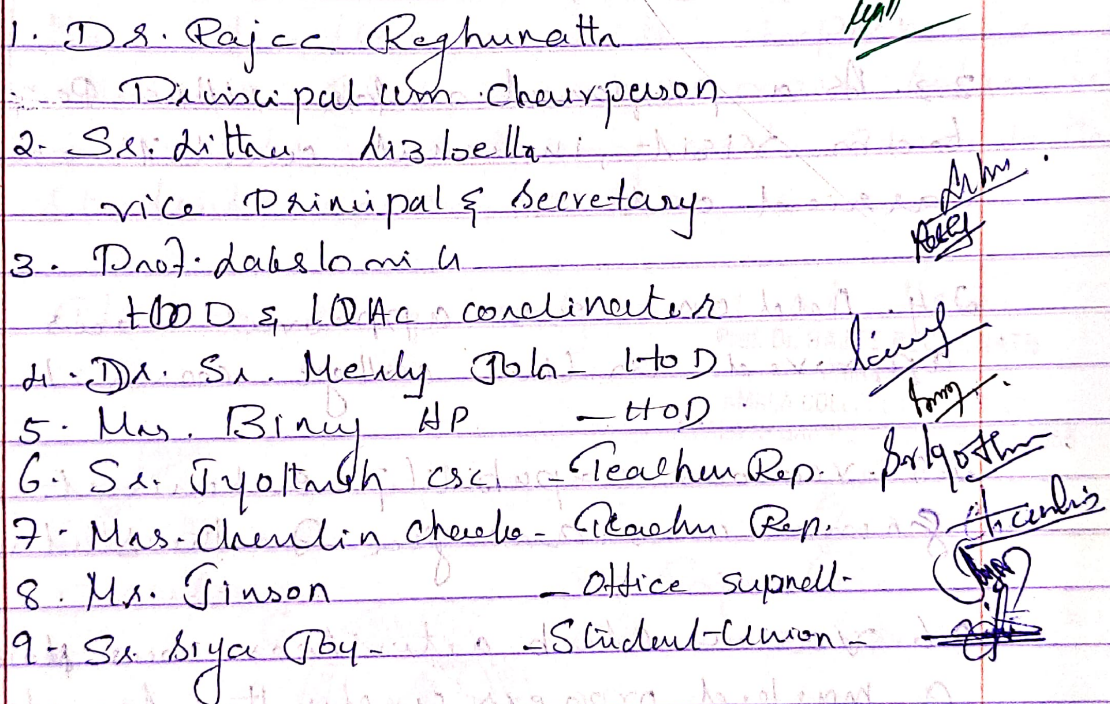 1. Dr. Rajee Reghunath
Principal cum chairperson
2. Sr. Littau Lizbella
vice Principal & Secretary
3. Prof. Lakshmi G
HOD & IQAC cordinator
4. Dr. Sr. Merly John - HoD
5. Mrs. Bincy AP - HOD
6. Sr. Jyoltmsh csc - Teacher Rep.
7. Mrs. Chenlin Chacko - Teacher Rep.
8. Mr. Jinson - Office
9. Sr. Siya Joy - - Student Union -